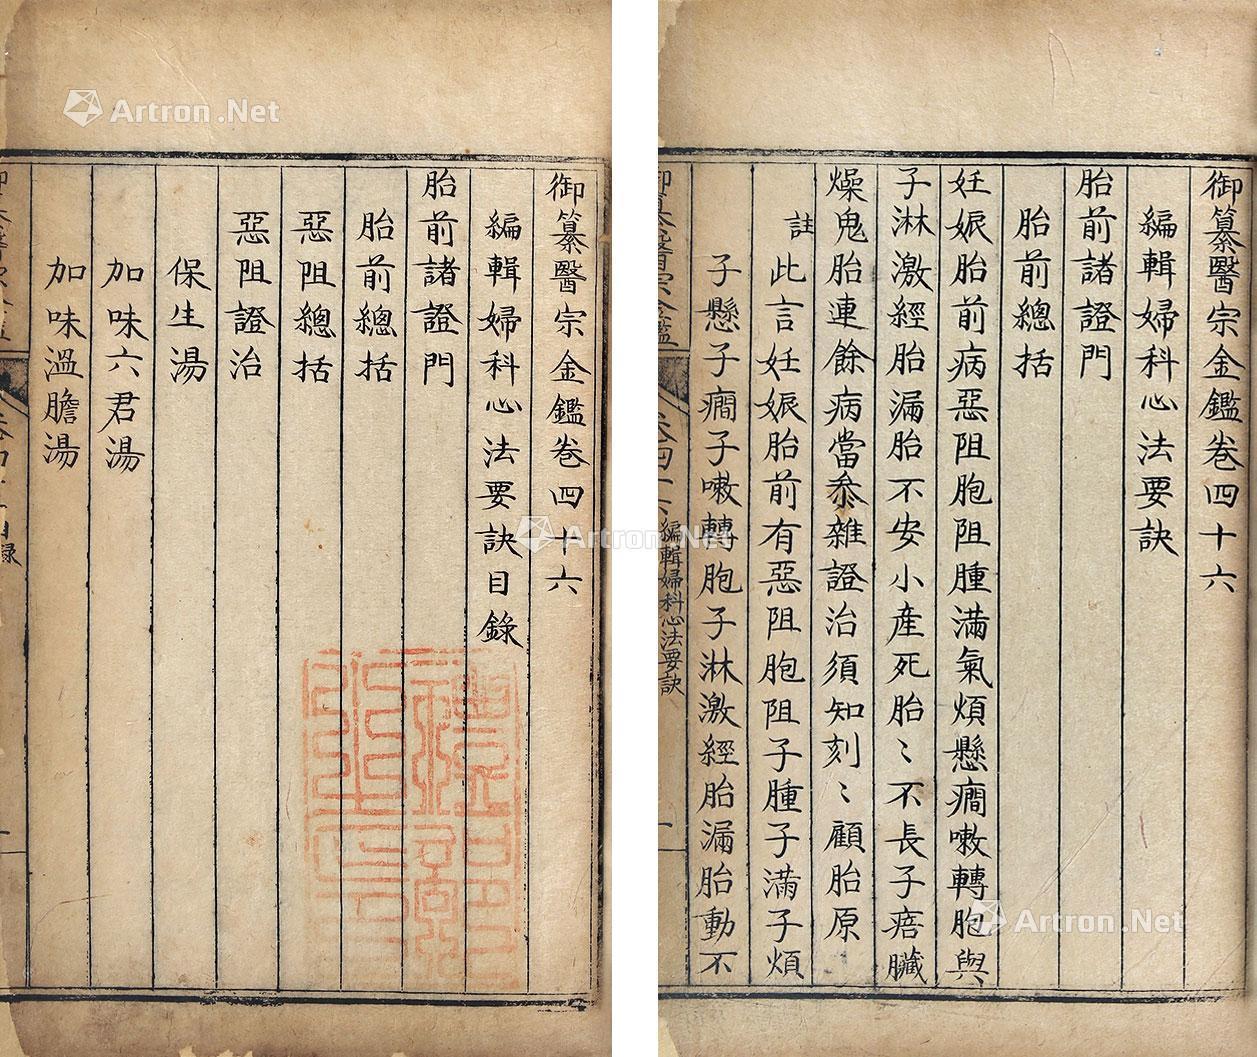 御纂醫宗金鑑卷四十六
編輯婦科心法要訣目錄
胎前諸證門
胎前總括
惡阻總括
惡阻證治
保生湯
加味六君湯
加味溫膽湯
御纂醫宗金鑑卷四十六
編輯婦科心法要訣
胎前諸證門
胎前總括
妊娠胎前病惡阻胞阻腫滿氣煩懸癎嗽轉胞與
子淋激經胎漏胎不安小産死胎〻不長子瘖臟
燥鬼胎連餘病當叅雜證治須知刻〻顧胎原
註
此言妊娠胎前有惡阻胞阻子腫子滿子煩
子懸子癎子嗽轉胞子淋激經胎漏胎動不
編輯婦科心法要訣
Artron.Net
Artron.Net
Artron.Net